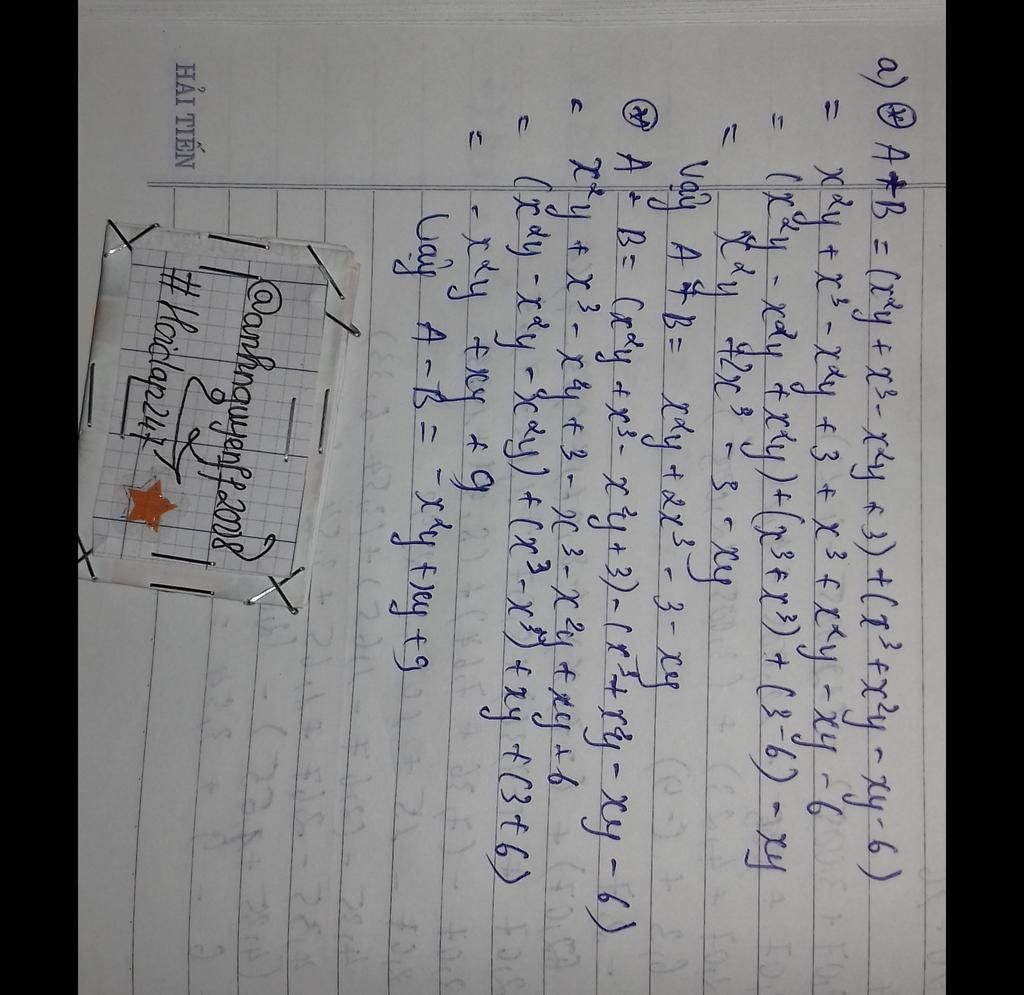 a) * A+B = (x²y + x³ - x²y + 3) + (x³ + x²y - xy - 6)
= x²y + x³ - x²y + 3 + x³ + x²y - xy - 6
= (x²y - x²y + x²y) + (x³ + x³) + (3-6) - xy
= x²y +2x³ - 3 - xy
Vậy A+B = x²y + 2x³ - 3 - xy
* A - B = (x²y + x³ - x²y + 3) - (x³ + x²y - xy - 6)
= x²y + x³ - x²y + 3 - x³ - x²y + xy + 6
= (x²y - x²y - x²y) + (x³ - x³) + xy + (3+6)
= - x²y + xy + 9
Vậy A - B = -x²y + xy + 9
HẢI TIẾN
@anhnguyenff2008
#Hoidap247